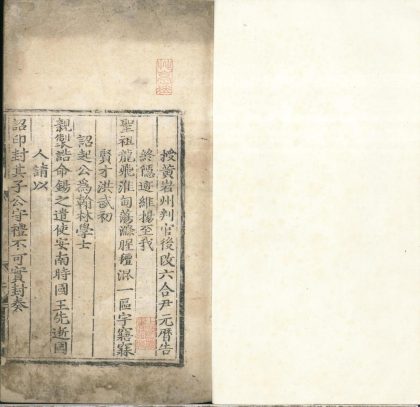 授黃岩州判官後改六合尹元曆告
終隱遊維揚至我
聖祖龍飛淮甸蕩滌腥羶混一區宇寤寐
賢才洪武初
詔起公為翰林學士
親製誥命錫之遣使安南時國王先逝國
人請以
詔印封其子公守禮不可實封奏